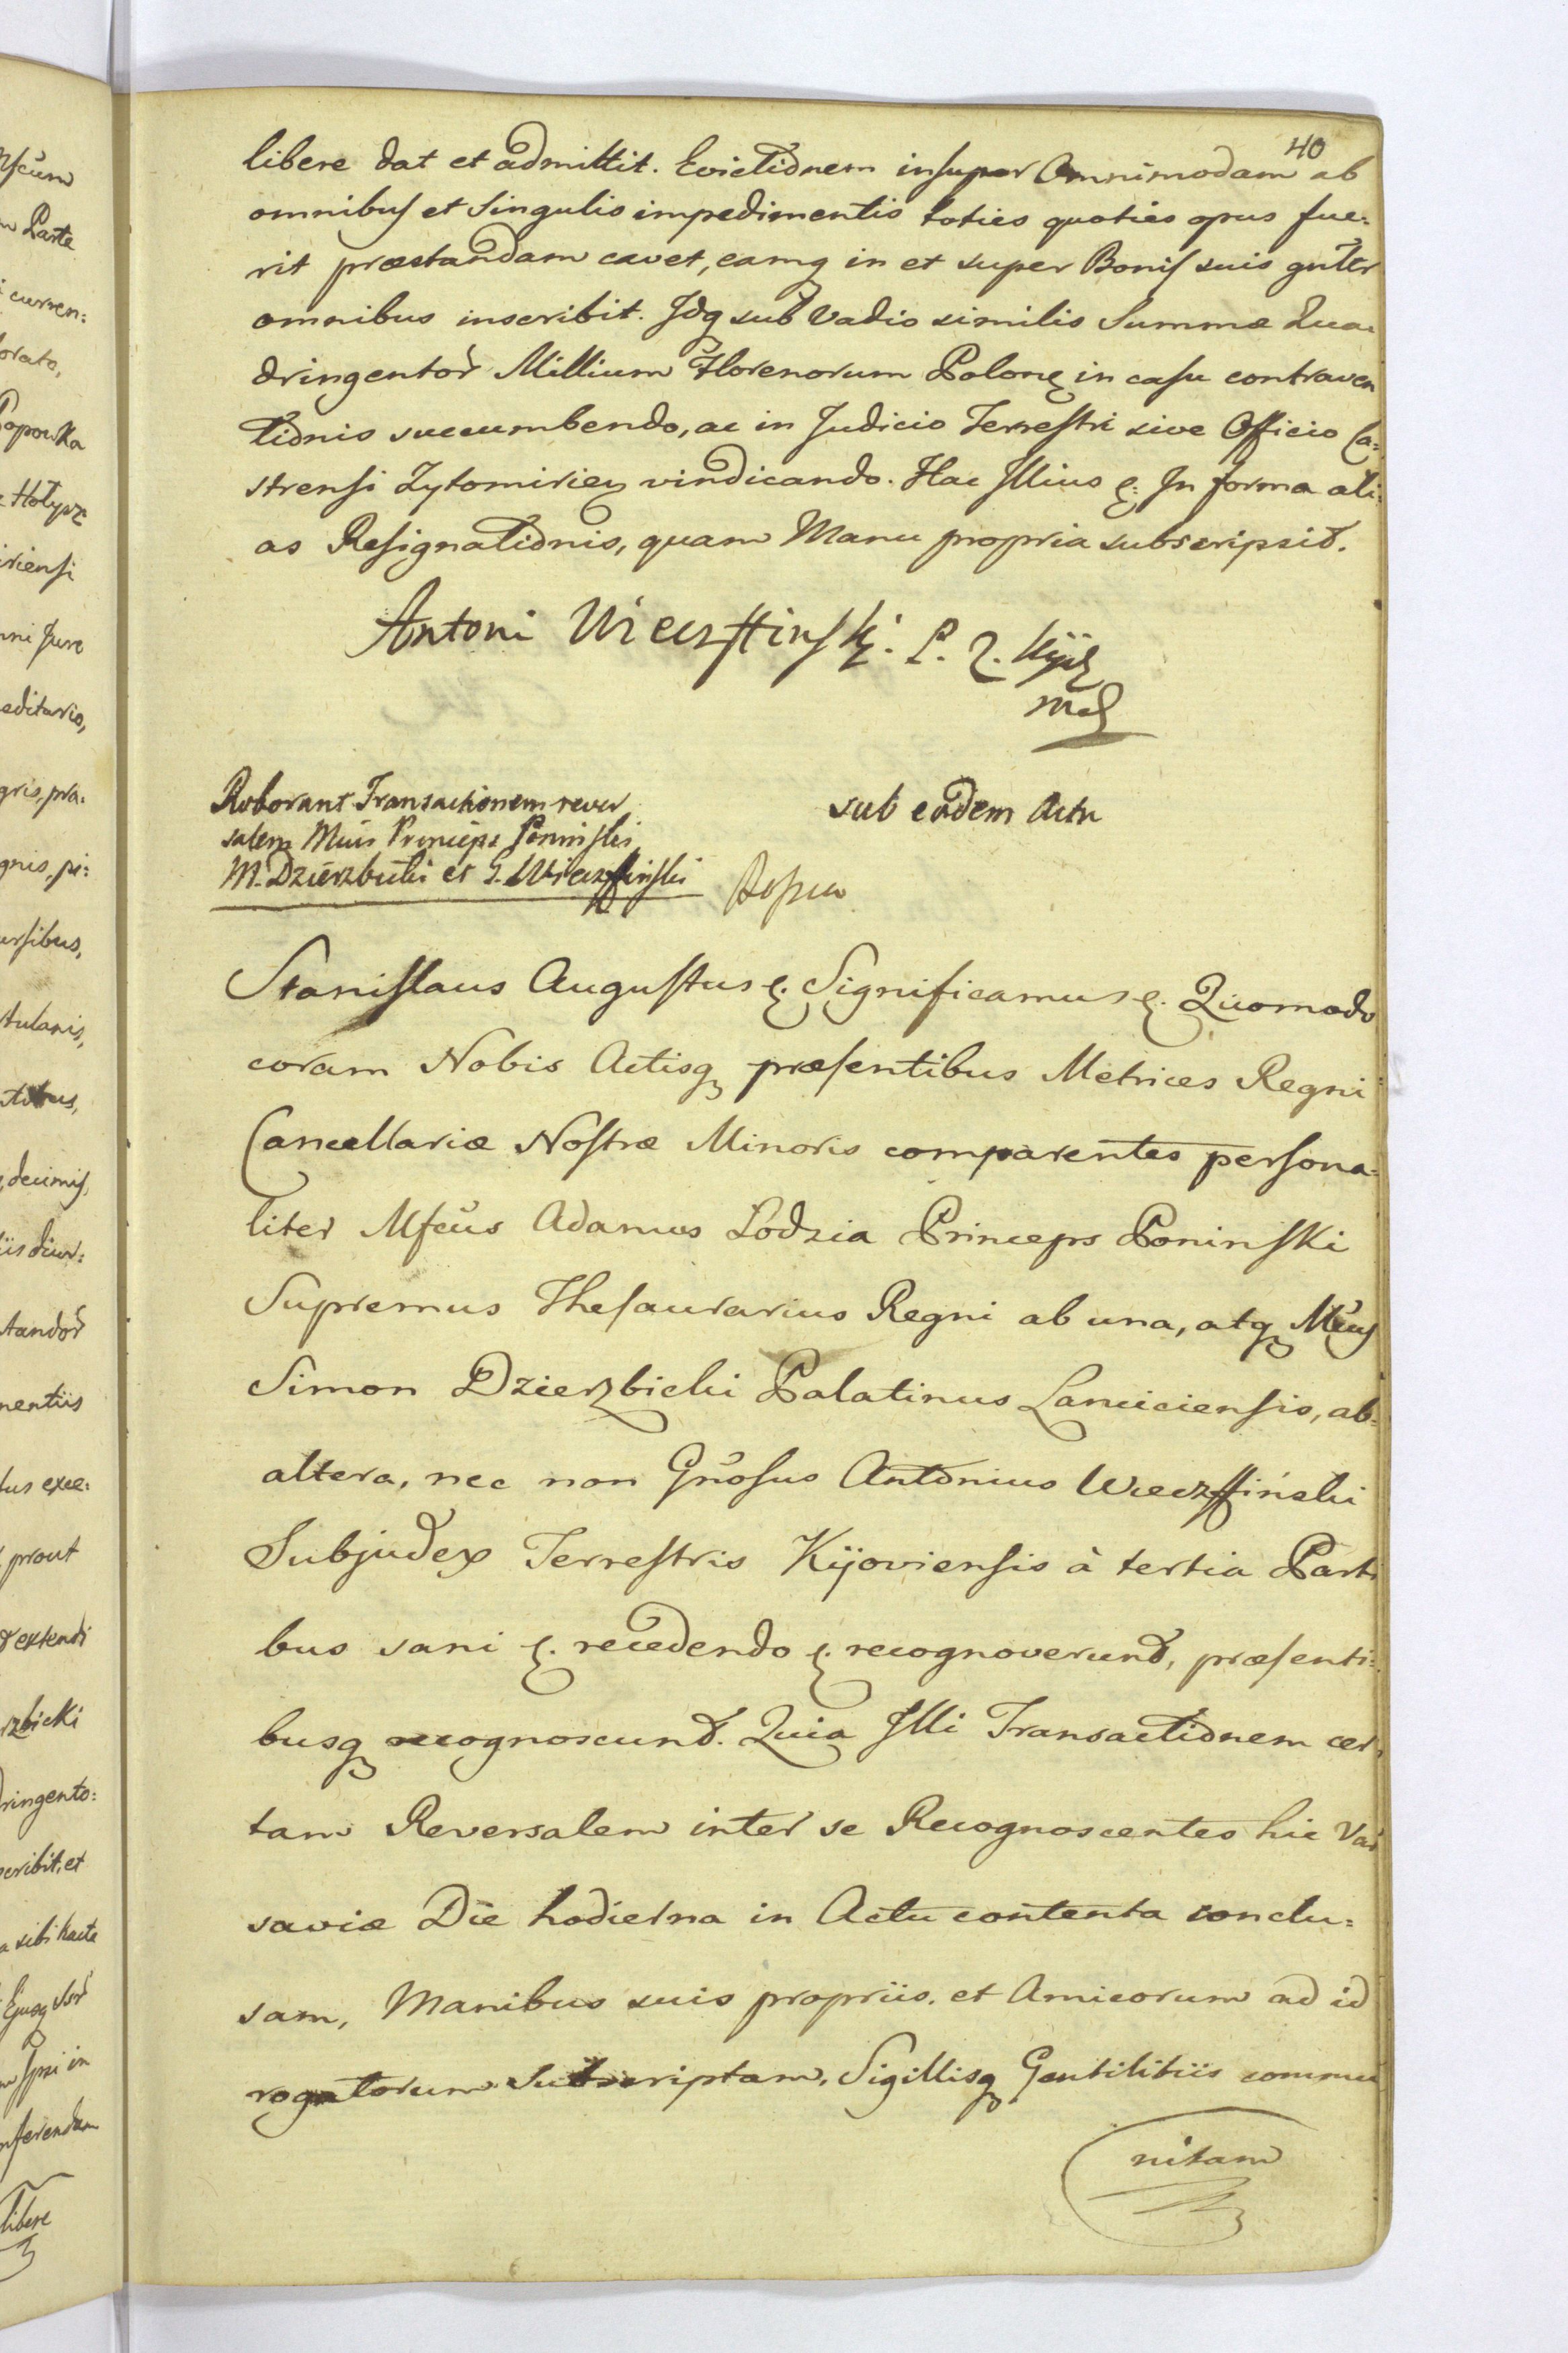 40
libere dat et admittit. Evictionem insuper Omnimodam ab
omnibus et Singulis impedimentis toties quoties opus fue:
rit præstandam cavet, eamq in et super Bonis suis gnlter
omnibus inscribit. Idq sub Vadio similis Summæ Qua:
dringentor Millium Florenorum Polon in casu contraven
tionis succumbendo, ac in Judicio Terrestri sive Officio Ca:
strensi Zytomirien vindicando. Hac Illius &. In forma ali:
as Resignationis, quam Manu propria subscripsit.
Antoni Wieczffinski. P. Z. Kijow
mp
Roborant Transactionem rever
salem Mcus Princeps Poninski
M. Dzierzbicki et G. Wieczffinski
sub eodem Actu
Stanislaus Augustus &. Significamus &. Quomodo
coram Nobis Actisq præsentibus Metrices Regni
Cancellariæ Nostræ Minoris comparentes persona:
liter Mfcus Adamus Lodzia Princeps Poninski
Supremus Thesaurarius Regni ab una, atq Mcus
Simon Dzierzbicki Palatinus Lanciciensis, ab
altera, nec non Gnosus Antonius Wieczffinski
Subjudex Terrestris Kijoviensis à tertia Parti
bus sani &. recedendo &. recognoverunt, præsenti:
busq recognoscunt. Quia Illi Transactionem cer
tam Reversalem inter se Recognoscentes hic Var
saviæ Die hodierna in Actu contenta conclu:
sam, Manibus suis propriis et Amicorum ad id
rogatorum subscriptam, Sigillisq Gentilitiis commu
nitam
nfcum
m Parte
curren:
orato,
Popowka
Hołysz
iriensi
mni Jure
editario,
gris, pra:
gnis, pi:
ursibus,
Aulanis,
decimis,
tandor
mentiis
tus exce:
prout
extendi
rzbicki
dringento:
scribit, et
a sibi hacte
Ejusq
m Ipsi in
nferendam
libere